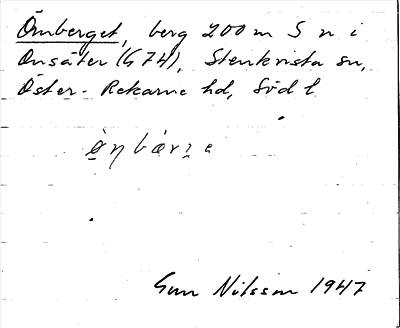 Ömberget, berg 200 m S n i
Onsäter (G74), Stenkvista sn,
Öster-Rekarne hd, Södl
Gun Nilsson 1947